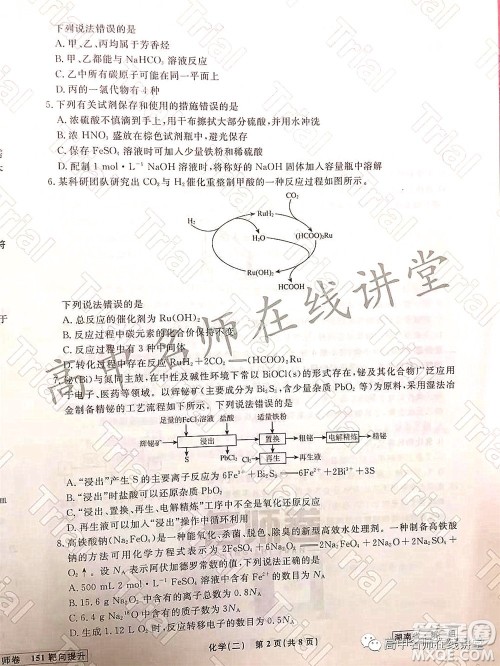 下列说法错误的是
A. 甲、乙、丙均属于芳香烃
B. 甲、乙都能与 NaHCO₃ 溶液反应
C. 乙中所有碳原子可能在同一平面上
D. 丙的一氯代物有 4 种
5. 下列有关试剂保存和使用的措施错误的是
A. 浓硫酸不慎滴到手上,用干布擦拭大部分硫酸,并用水冲洗
B. 浓 HNO₃ 盛放在棕色试剂瓶中,避光保存
C. 保存 FeSO₄ 溶液时可加入少量铁粉和稀硫酸
D. 配制 1 mol·L⁻¹ NaOH 溶液时,将称好的 NaOH 固体加入容量瓶中溶解
6. 某科研团队研究出 CO₂ 与 H₂ 催化重整制甲酸的一种反应过程如图所示。
CO₂
H₂
RuH₂
H₂O
(HCOO)₂Ru
Ru(OH)₂
HCOOH
下列说法错误的是
A. 总反应的催化剂为 Ru(OH)₂
B. 反应过程中碳元素的化合价保持不变
C. 反应过程中有 3 种中间体
D. 转化过程中存在反应 RuH₂+2CO₂══(HCOO)₂Ru
7. 铋(Bi)与氮同主族,在中性及碱性环境下常以 BiOCl(s) 的形式存在,铋及其化合物广泛应用
于电子、医药等领域。以辉铋矿(主要成分为 Bi₂S₃,含少量杂质 PbO₂ 等)为原料,采用湿法冶
金制备精铋的工艺流程如下所示。下列说法错误的是
足量的FeCl₃溶液 盐酸 适量铁粉
辉铋矿 浸出 置换 粗铋 电解精炼 精铋
S PbCl₂ 再生 再生液
A. “浸出”产生 S 的主要离子反应为 6Fe³⁺+Bi₂S₃══6Fe²⁺+2Bi³⁺+3S
B. “浸出”时盐酸可以还原杂质 PbO₂
C. “浸出、置换、再生、电解精炼”工序中不全是氧化还原反应
D. 再生液可以加入“浸出”操作中循环利用
8. 高铁酸钠(Na₂FeO₄)是一种能氧化、杀菌、脱色、除臭的新型高效水处理剂。一种制备高铁酸
钠的方法可用化学方程式表示为 2FeSO₄+6Na₂O₂══2Na₂FeO₄+2Na₂O+2Na₂SO₄+
O₂↑。设 Nᴀ 表示阿伏加德罗常数的值,下列说法正确的是
A. 500 mL 2 mol·L⁻¹ FeSO₄ 溶液中含有 Fe²⁺ 的数目为 Nᴀ
B. 15.6 g Na₂O₂ 中含有离子总数为 0.8Nᴀ
化学(二) 第 2 页(共 8 页)
师卷 151 靶向提升
湖南
高中名师在线讲堂
高中名师在线讲堂
Trial